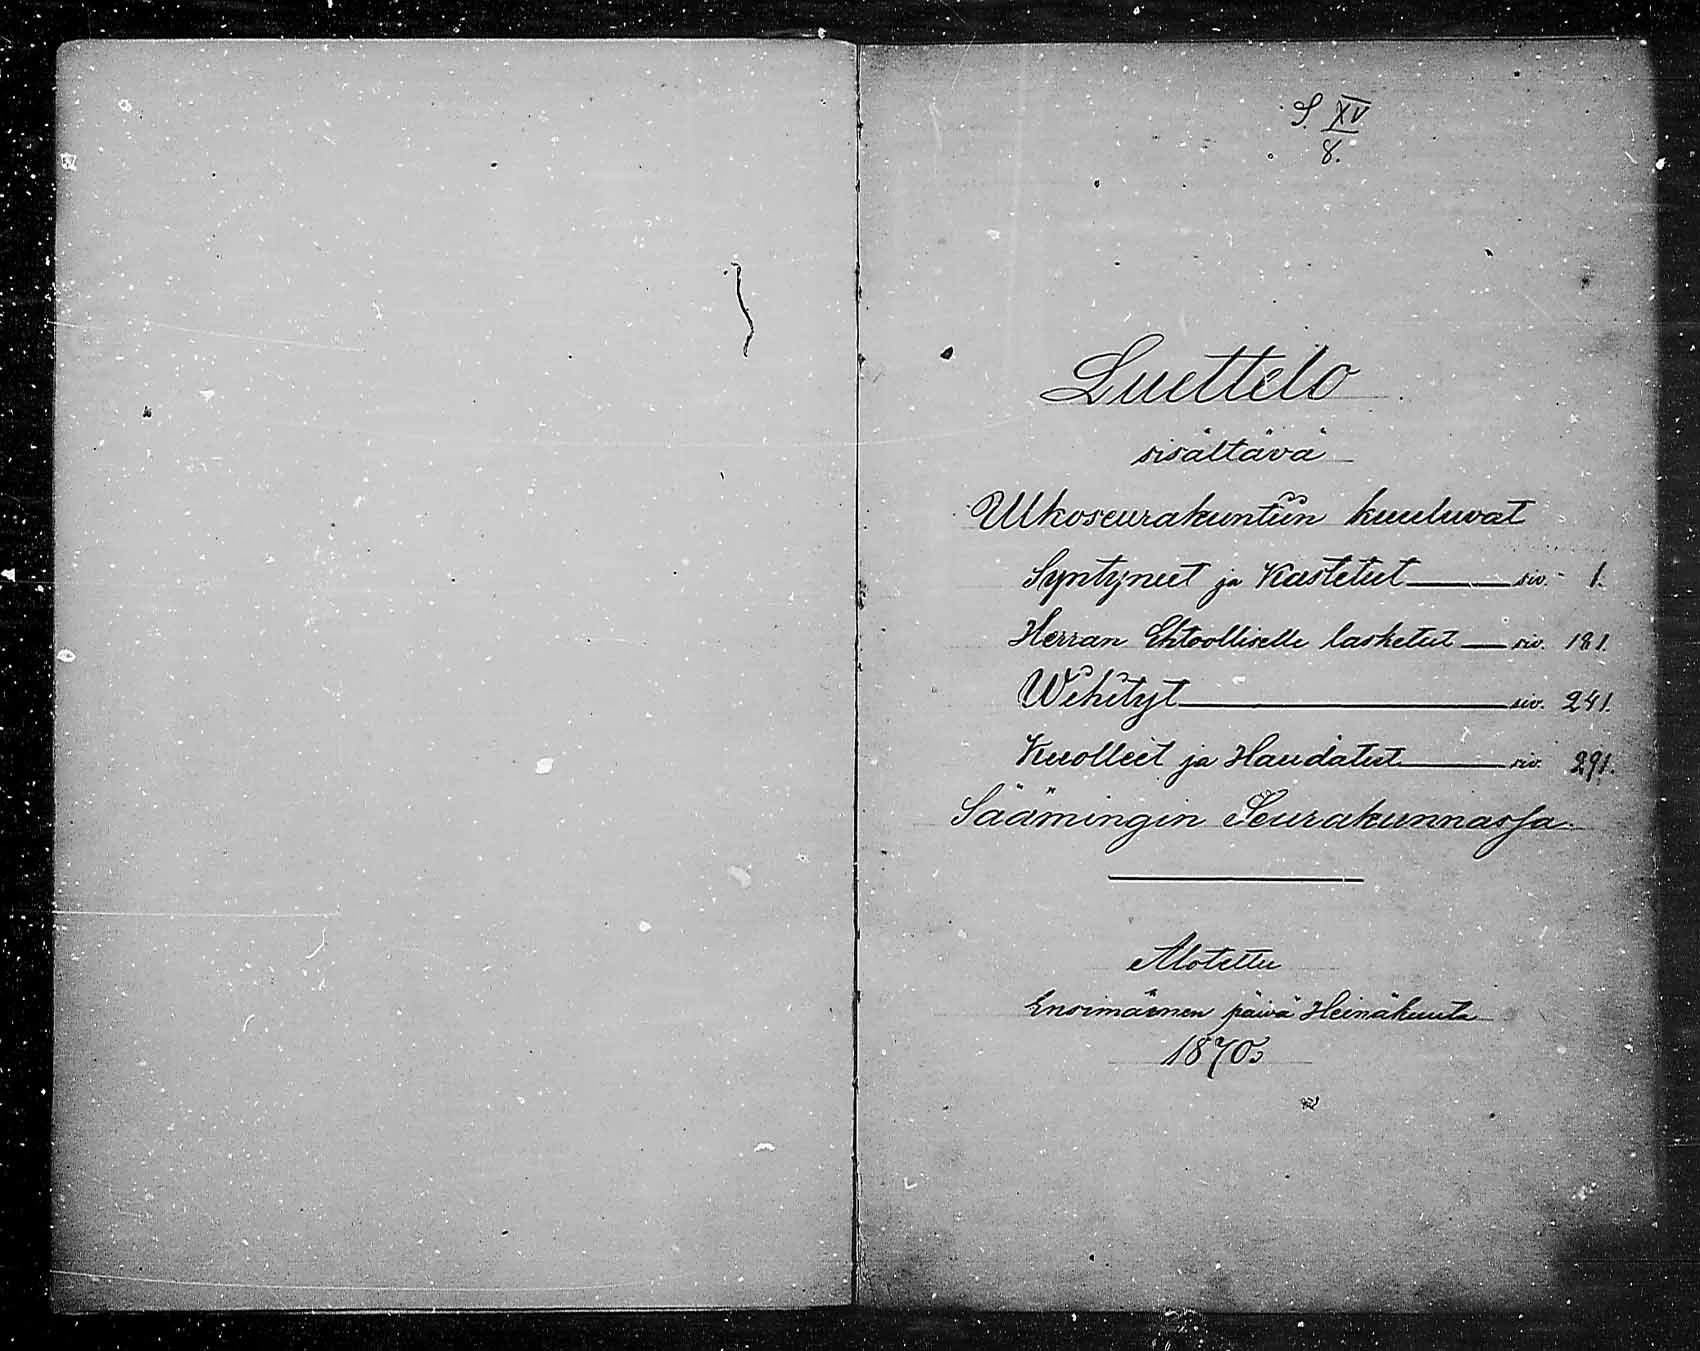 S. XV
8.
Luettelo
sisältävä
Ulkoseurakuntiin kuuluvat
Syntyneet ja Kastetut siv. 1.
Herran Ehtoolliselle lasketut siv. 181.
Wihityt siv. 241.
Kuolleet ja Haudatut siv. 291.
Säämingin Seurakunnassa.
Alotettu
Ensimäinen päivä Heinäkuuta
1870.